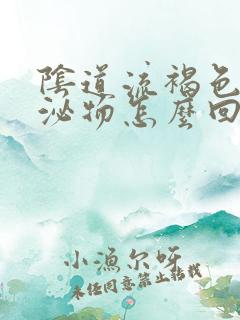 陰道流褐色
泌物怎麼回
小漁尔呀
未经同意禁止转载